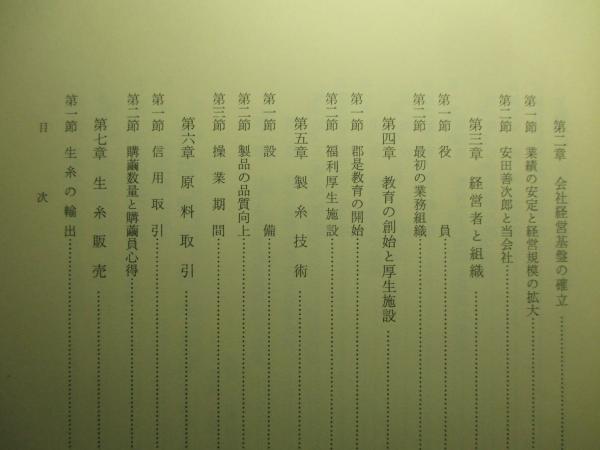 第二章 会社経営基盤の確立
第一節 業績の安定と経営規模の拡大
第二節 安田善次郎と当会社
第三章 経営者と組織
第一節 役員
第二節 最初の業務組織
第四章 教育の創始と厚生施設
第一節 郡是教育の開始
第二節 福利厚生施設
第五章 製糸技術
第一節 設備
第二節 製品の品質向上
第三節 操業期間
第六章 原料取引
第一節 信用取引
第二節 購繭数量と購繭員心得
第七章 生糸販売
第一節 生糸の輸出
目次